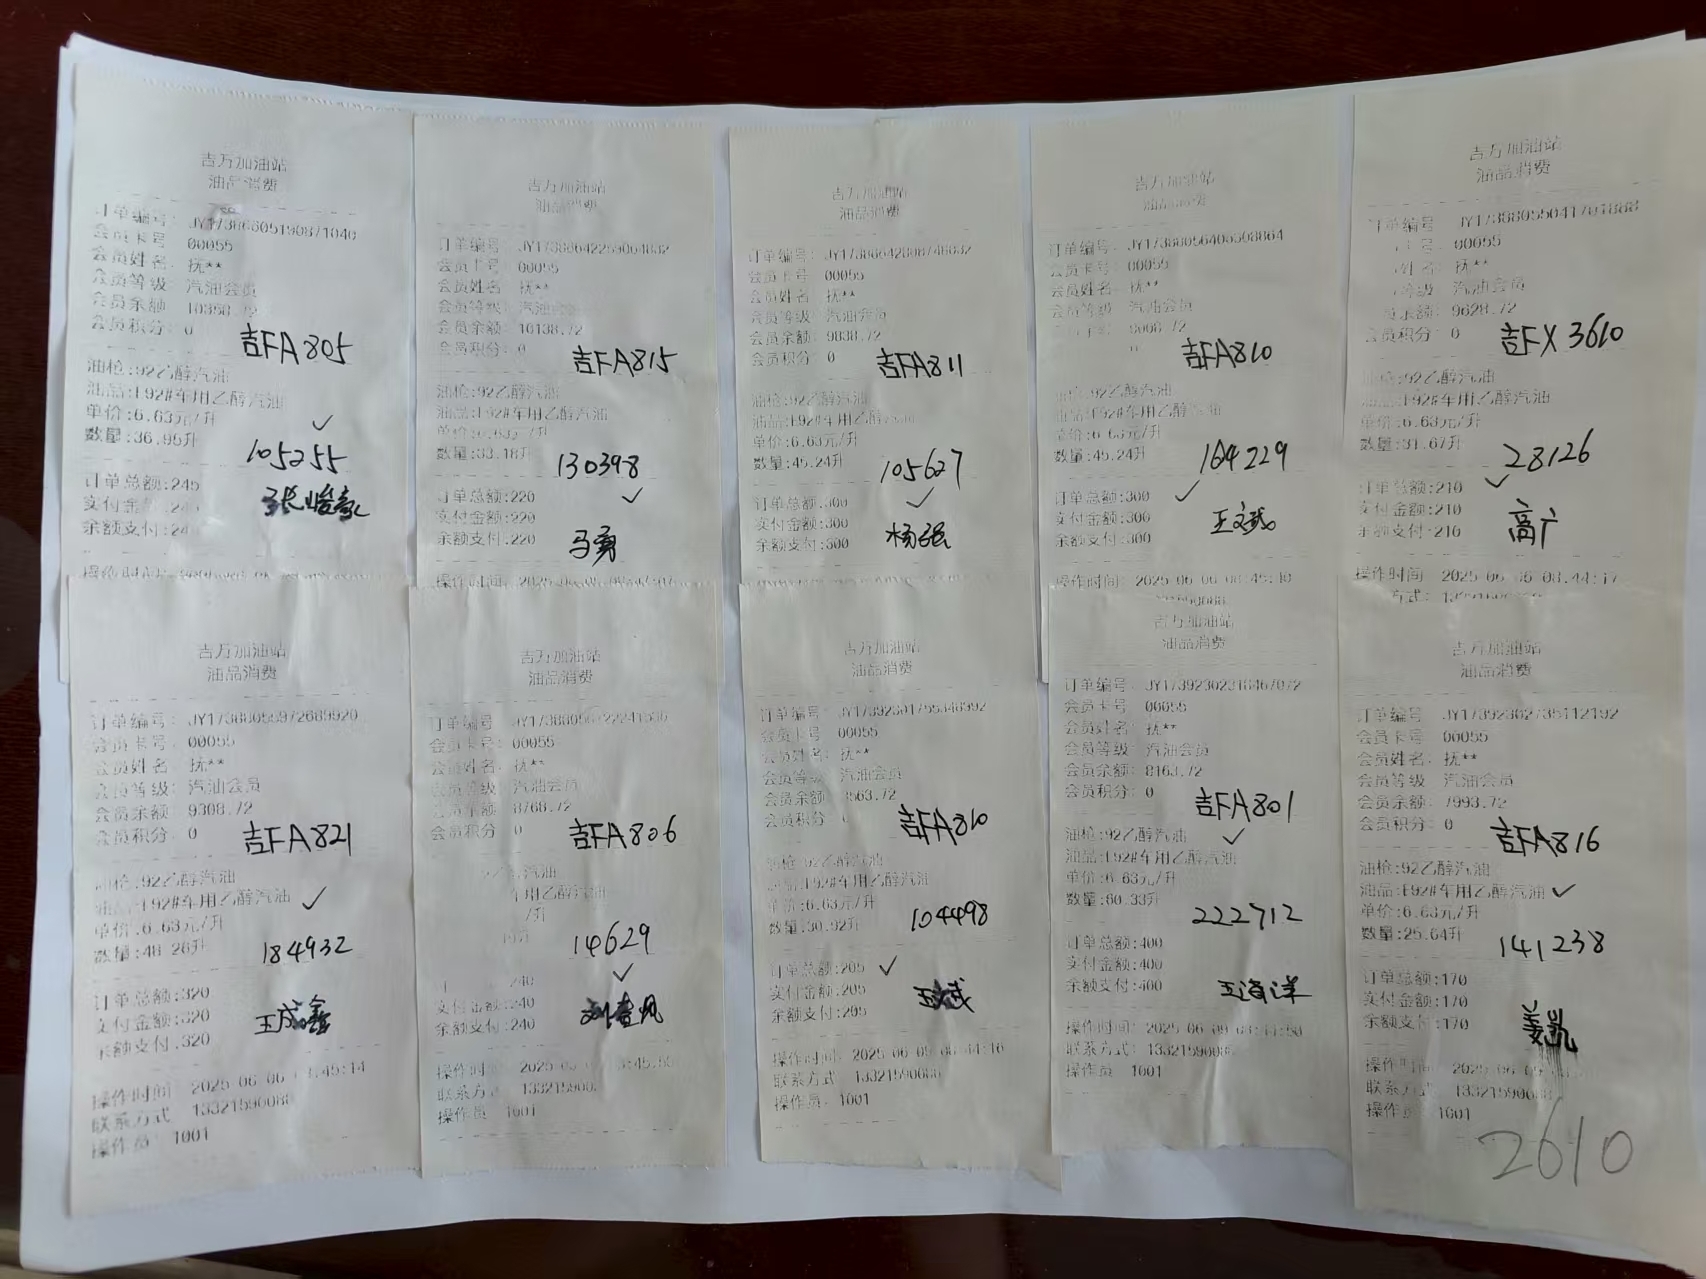 吉万加油站
油品消费
订单编号: JY1738665190871040
会员卡号: 00055
会员姓名: 抚**
会员等级: 汽油会员
会员余额: 10358.72
会员积分: 0
吉FA805
油枪:92乙醇汽油
油品:E92#车用乙醇汽油
单价:6.63元/升
数量:36.95升
105255
订单总额:245
实付金额
余额支付
张峻豪
吉万加油站
油品消费
订单编号
会员卡号 00055
会员姓名: 抚**
会员等级: 汽油会员
会员余额: 10138.72
会员积分: 0
吉FA815
油枪:92乙醇汽油
油品:E92#车用乙醇汽油
数量:33.18升
130398
订单总额:220
实付金额:220
余额支付:220
马勇
吉万加油站
油品消费
订单编号
会员卡号 00055
会员姓名 抚**
会员等级: 汽油会员
会员余额: 9838.72
会员积分: 0
吉FA811
油枪:92乙醇汽油
油品:E92#车用乙醇汽油
单价:6.63元/升
数量:45.24升
105627
订单总额:300
实付金额:300
余额支付:300
杨强
吉万加油站
油品消费
订单编号:
会员卡号: 00055
会员姓名: 抚**
会员等级 汽油会员
吉FA810
油枪:92乙醇汽油
油品:E92#车用乙醇汽油
单价:6.63元/升
数量:45.24升
164229
订单总额:300
实付金额:300
余额支付:300
王文武
操作时间: 2025-06-06 08:45:10
吉万加油站
油品消费
订单编号 JY17388055041701888
卡号: 00055
姓名: 抚**
等级: 汽油会员
余额: 9628.72
会员积分: 0
吉FX3610
油枪:92乙醇汽油
油品:E92#车用乙醇汽油
单价:6.63元/升
数量:31.67升
28126
订单总额:210
实付金额:210
余额支付:210
高广
操作时间 2025-06-06 08:44:17
吉万加油站
油品消费
订单编号: JY1738805972689920
会员卡号: 00055
会员姓名: 抚**
会员等级: 汽油会员
会员余额: 9308.72
会员积分: 0
吉FA821
油枪:92乙醇汽油
油品:E92#车用乙醇汽油
单价:6.63元/升
数量:48.26升
184932
订单总额:320
实付金额:320
余额支付:320
王成鑫
操作时间
联系方式 13321590088
操作员: 1001
吉万加油站
油品消费
订单编号
会员卡号: 00055
会员姓名: 抚**
会员等级: 汽油会员
会员余额: 8768.72
会员积分 0
吉FA806
汽油
车用乙醇汽油
/升
14629
240
实付金额:240
余额支付:240
操作时间
联系方式
操作员 1001
吉万加油站
油品消费
订单编号:
会员卡号: 00055
会员姓名: 抚**
会员等级 汽油会员
会员余额
会员积分: 0
吉FA810
油枪:92乙醇汽油
油品:E92#车用乙醇汽油
单价:6.63元/升
数量:30.92升
104498
订单总额:205
实付金额:205
余额支付:205
操作时间: 2025-06-09 08:44:16
联系方式 13321590088
操作员: 1001
吉万加油站
油品消费
订单编号: JY17392302318467072
会员卡号: 00055
会员姓名: 抚**
会员等级: 汽油会员
会员余额: 8163.72
会员积分: 0
吉FA801
油枪:92乙醇汽油
油品:E92#车用乙醇汽油
单价:6.63元/升
数量:60.33升
222712
订单总额:400
实付金额:400
余额支付:400
王海洋
操作时间:
联系方式: 13321590088
操作员 1001
吉万加油站
油品消费
订单编号 JY17392302735112192
会员卡号: 00055
会员姓名: 抚**
会员等级 汽油会员
会员余额: 7993.72
会员积分: 0
吉FA816
油枪:92乙醇汽油
油品:E92#车用乙醇汽油
单价:6.63元/升
数量:25.64升
141238
订单总额:170
实付金额:170
余额支付:170
姜凯
操作时间
联系方式: 13321590088
操作员: 1001
2610